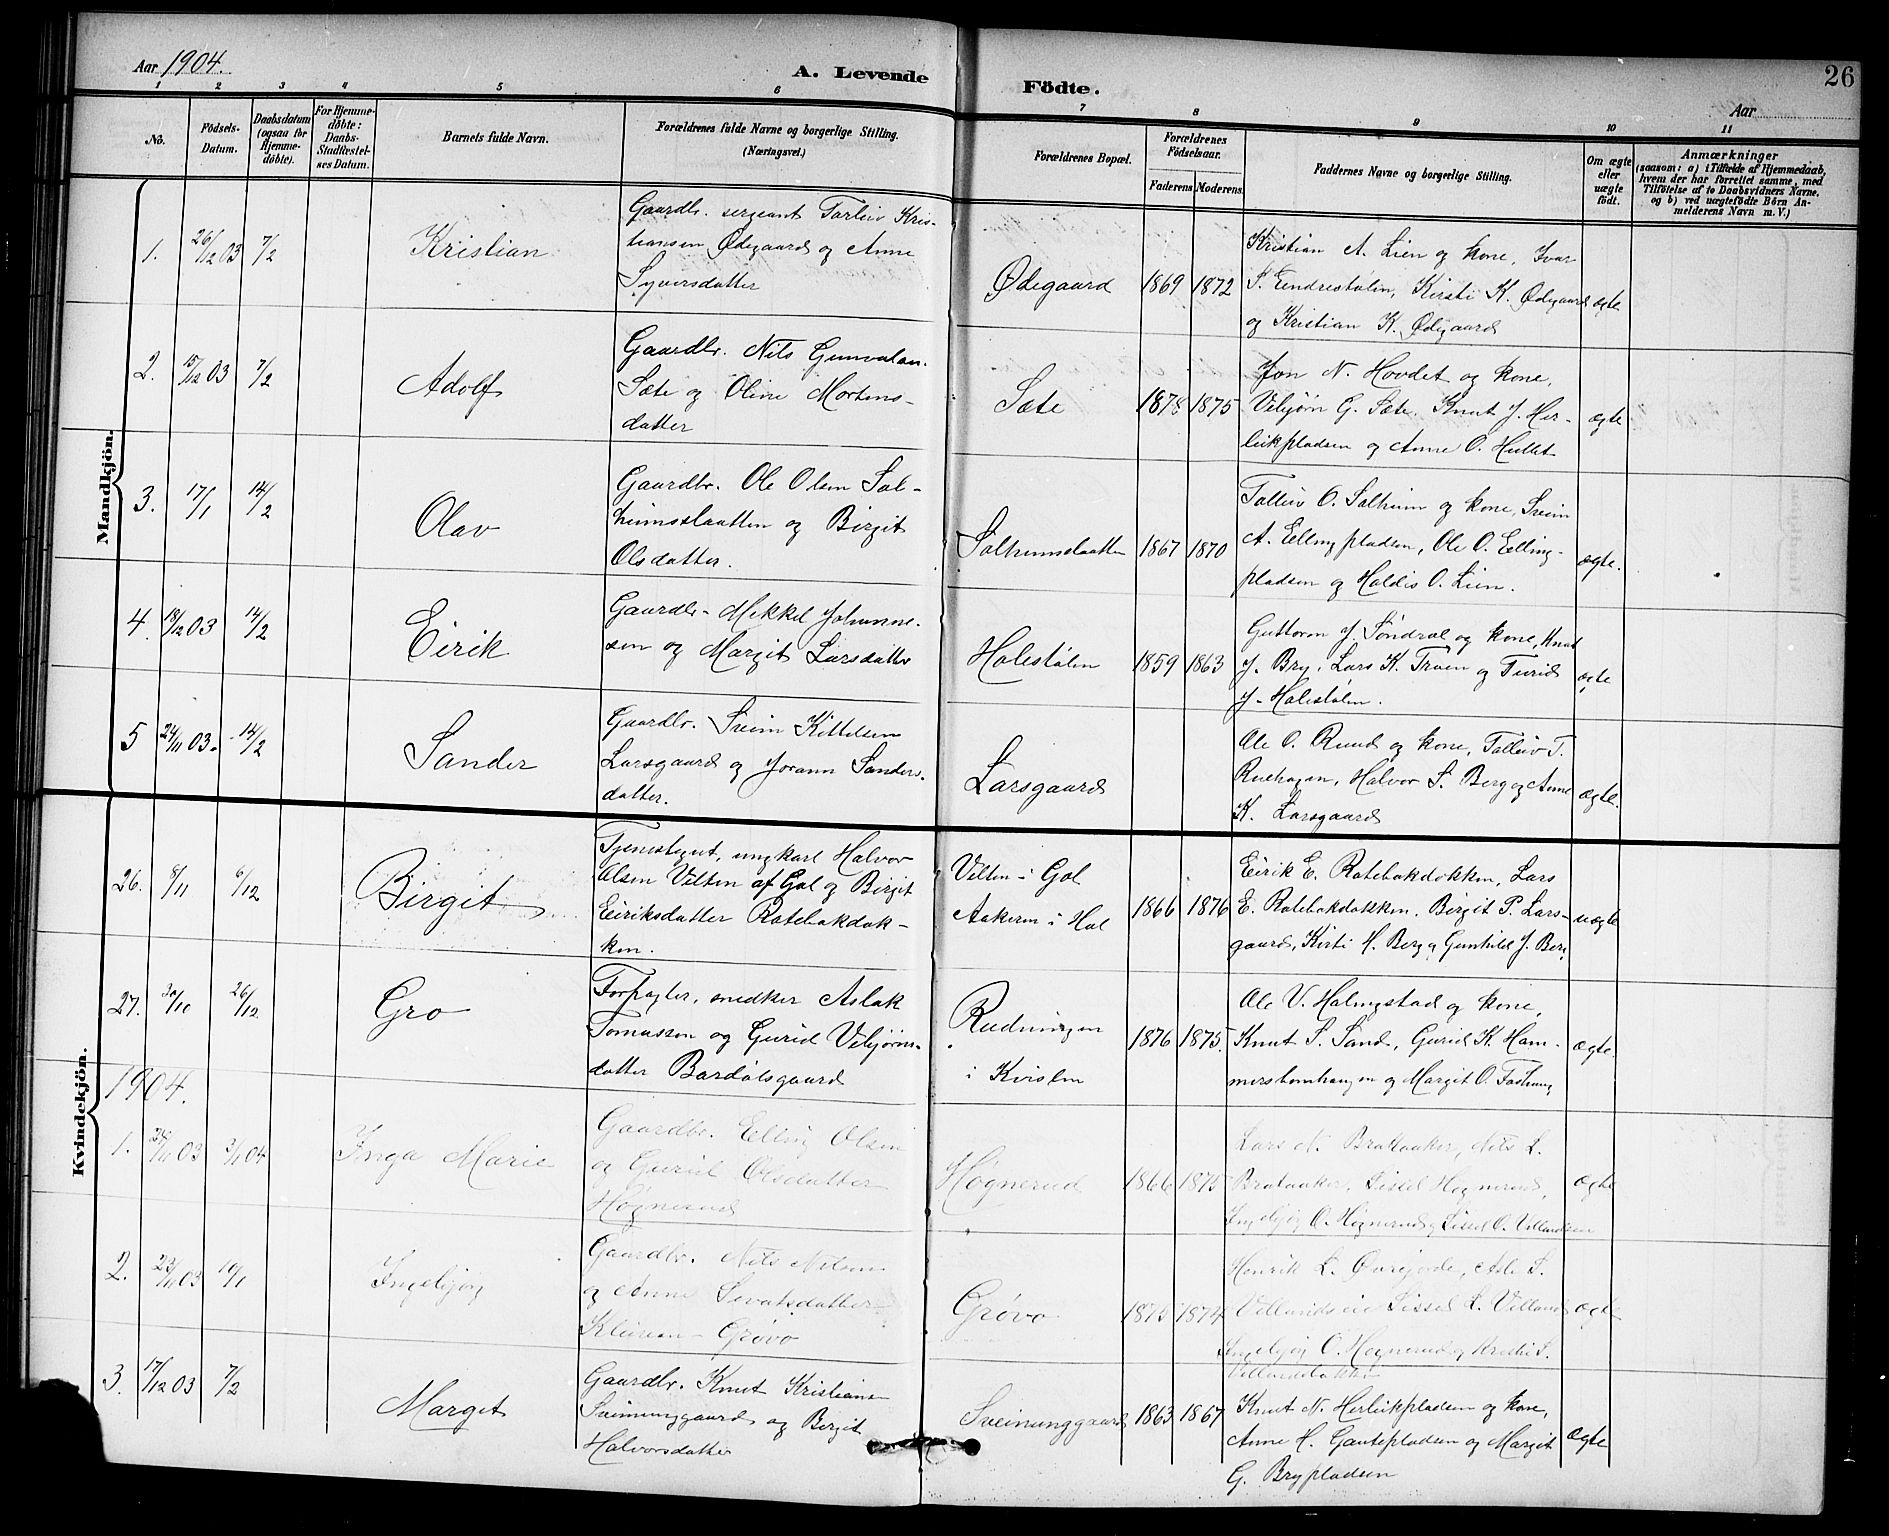 Aar 1904.
A. Levende
Födte.
26
Aar
1 2 3 4 5 6 7 8 9 10 11
No.
Födsels-
Datum.
Daabsdatum
(ogsaa for
Hjemme-
döbte).
For Hjemme-
döbte:
Daabs-
Stadfæstel-
ses Datum.
Barnets fulde Navn.
Forældrenes fulde Navne og borgerlige Stilling.
(Næringsvei.)
Forældrenes Bopæl.
Forældrenes
Födselsaar.
Faderens Moderens.
Faddernes Navne og borgerlige Stilling.
Om ægte
eller
uægte
födt.
Anmærkninger
(saasom: a) i Tilfælde af Hjemmedaab,
hvem der har forrettet samme, med
Tilföielse af to Daabsvidners Navne.
og b) ved uægtefödte Börn An-
melderens Navn m. V.)
Mandkjön.
1. 26/12 03 7/2
Kristian
Gaardbr. sergeant Tarleiv Kris-
tiansen Ødegaard og Anne
Syversdatter
Ødegaard
1869 1872
Kristian A. Lien og kone, Ivar
S. Eindrestølen, Kirsti K. Ødegaard
og Kristian K. Ødegaard
ægte
2. 15/12 03 7/2
Adolf
Gaardbr. Nils
Sæte og Oline Mortens-
datter
Sæte
1878 1875
Jon N. Hovdet og kone,
Vebjørn G. Sæte. Knut J. Her-
leikpladsen og Anne O. Hullet
ægte
3. 17/1 14/2
Olav
Gaardbr. Ole Olsen Sal-
heimsslaatten og Birgit
Olsdatter.
Salheimslaatten
1867 1870
Tolleiv O. Salheim og kone, Svein
A. Ellingpladsen, Ole O. Elling-
pladsen og Haldis O. Lien.
ægte.
4. 18/12 03 14/2
Eirik
Gaardbr. Mekkel Johanne-
sen og Margit Larsdatter
Holestølen
1859 1863
Guttorm J. Søndral og kone, Knut
J. Bry, Lars K. Træen og Turid
J. Holestølen.
ægte
5 24/11 03. 14/2
Sander
Gaardbr. Svein Kittelsen
Larsgaard og Jorann Sanders-
datter.
Larsgaard
Ole O. Ruud og kone, Tolleiv T.
Ruehagen, Halvor S. Berg og Anne
K. Larsgaard
ægte.
Kvindekjön.
26. 8/11 6/12
Birgit
Tjenestegut, ungkarl Halvor
Olsen Vilten af Gol og Birgit
Eiriksdatter Rotebakdok-
ken.
Vilten i Gol
Aakeren i Hol
1866 1876
Eirik E. Rotebakdokken, Lars
E. Rotebakdokken. Birgit P. Lars-
gaard, Kirsti H. Berg og Gunhild J. Berg
uægte
27. 30/10 26/12
Gro
Forpagter, snedker Aslak
Tomassen og Gurid Vebjørns-
datter Bardølsgaard
Rudningen
i Kvislen
1876 1875.
Ole V. Holmgstad og kone,
Knut S. Sand, Gurid K. Ham-
mersbomhaugen og Margit O.
ægte.
1904.
1. 03 3/1 04
Inga Marie
Gaardbr. Elling Olsen
og Gurid Olsdatter
Høgnerud
Høgnerud
1866 1875
Lars N. Brataaker, Nils L.
Brataaker, Sissel Høgnerud,
Ingebjørg O. Høgnerud og Sissel O.
ægte
2. 23/11 03 10/1
Ingebjørg
Gaardbr. Nils Nilsen
og Anne Sevatsdatter
Grøvo
Grøvo
1875 1874
Henrik L. Øvrejorde, Asle S.
Villandseie Sissel L. Villand
Ingebjørg O. Høgnerud og Kristi S.
Villanddokki
ægte
3. 17/12 03 7/2
Margit
Gaardbr. Knut Kristians
Sveinunggaard og Birgit
Halvorsdatter
Sveinunggaard
1863 1867
Knut N. Herleikpladsen og kone,
Anne H. Gautepladsen og Margit
G. Brypladsen
ægte